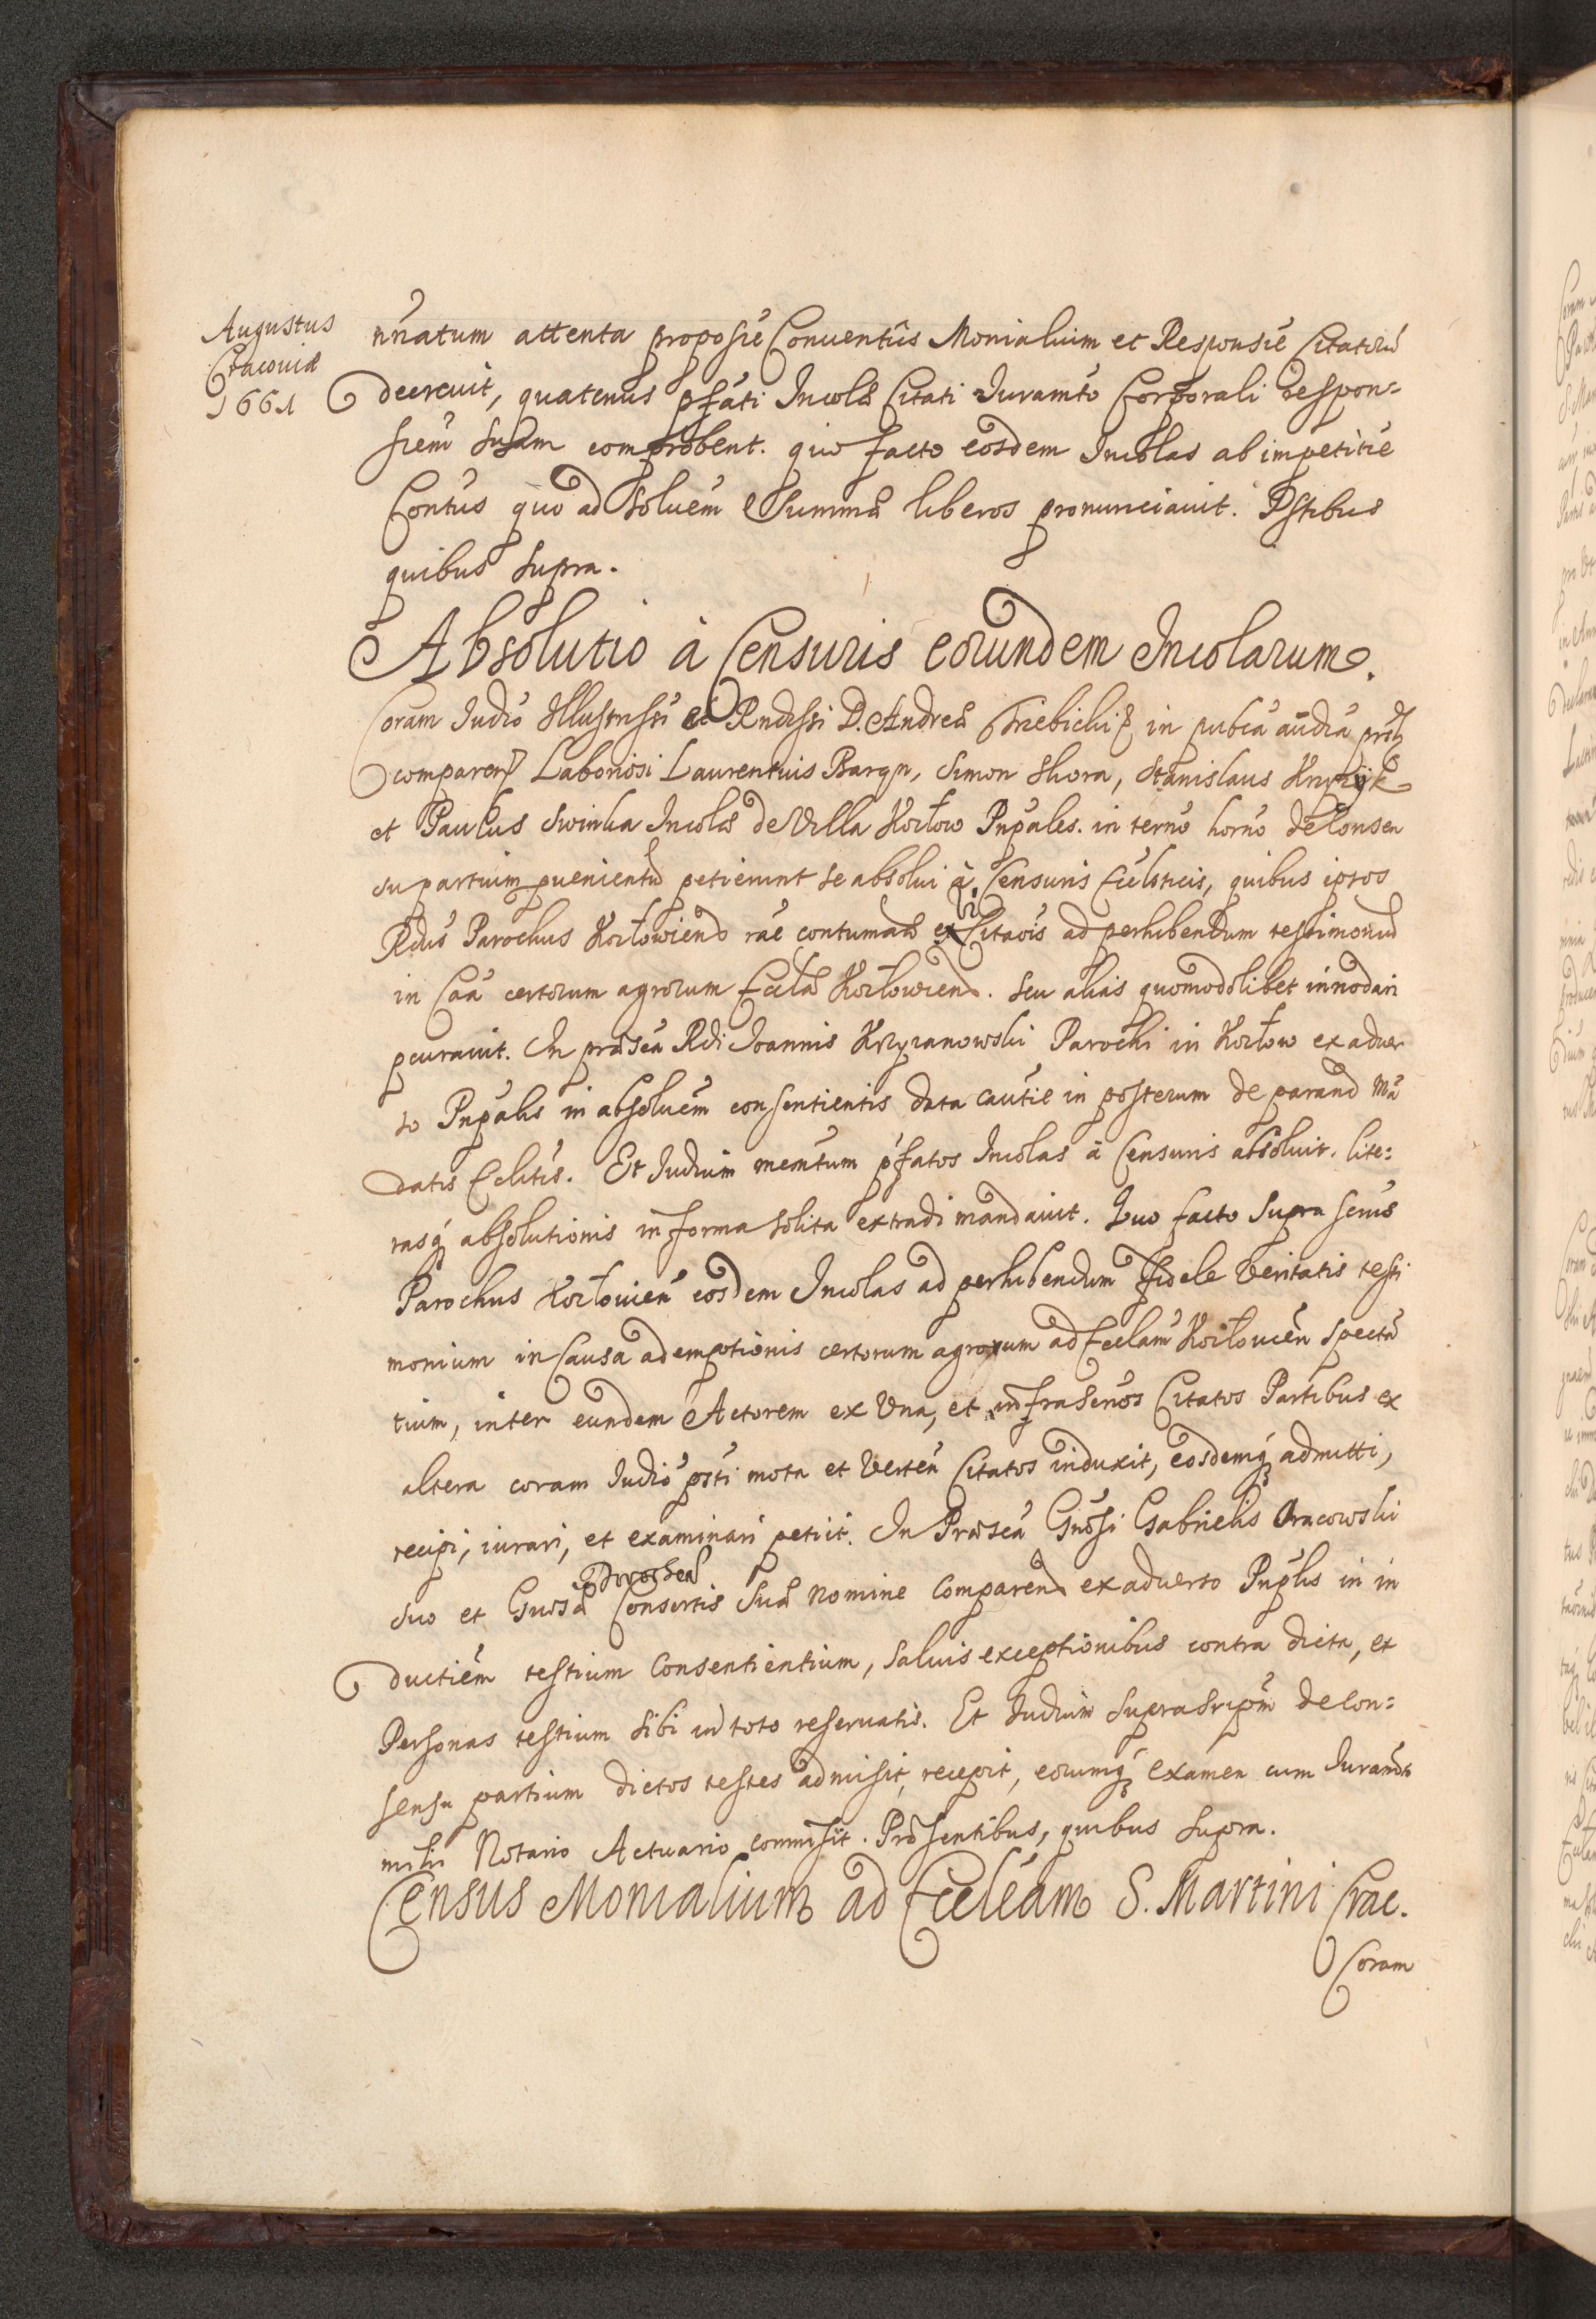 Augustus
Cracoviæ
1661
nnatum attenta proposie Conuentus Monialium et Responsie Citatorū
decreuit, quatenus pfati Incolæ Citati Juramto Corporali respon=
siem suam comprobent. quo facto eosdem Incolas ab impetitie
Contus quo ad soluem Summæ liberos pronunciauit. Pstibus
quibus supra.
Absolutio à Censuris eorundem Incolarum.
Coram Judio Illustrssi et Rndissi D. Andreæ Trzebicki in pubca audia
comparen Laboriosi Laurentius Stanislaus
et Paulus Swinka Incolæ de Villa Kozłow Pnpales. in termo horno de Consen
su partium puenientū petierunt se absolui à Censuris Ecclsticis, quibus ipsos
Rdus Parochus Kozłowien rae contumaciæ ex Citaois ad perhibendum testimoniū
in Caa certorum agrorum Ecclæ Kozłowien. seu alias quomodolibet innodari
pcurauit. In præsea Rdi Joannis Krzyzanowski Parochi in Kozłow ex aduer
so Pnpalis in absoluem consentientis data cautie in posterum de parend Mā
datis Eclitis. Et Judium memtum pfatos Incolas à Censuris absoluit. lite=
rasq absolutionis in forma solita extradi mandauit. Quo facto supra scrius
Parochus Kozłouien eosdem Incolas ad perhibendum fidele Veritatis testi
monium in Causa ademptionis certorum agrorum ad Ecclam Kozłouien spectā
tium, inter eundem Actorem ex Una, et infrascrios Citatos Partibus ex
altera coram Judio psti mota et Verten Citatos induxit, eosdemq admitti,
recipi, iurari, et examinari petiit. In Præsea Gnosi Gabrielis Oracowski
Dorotheæ
suo et Gnosæ Consortis suæ nomine Comparen ex aduerso Pnplis in in
ductiem testium Consentientium, saluis exceptionibus contra dicta, et
Personas testium sibi in toto reseruatis. Et Judium suprascripm de Con=
sensu partium dictos testes admisit, recepit, eorumq examen cum Juramto
mihi Notario Actuario commisit. Præsentibus, quibus supra.
Census Monialium ad Eccleam S. Martini Crac.
Coram